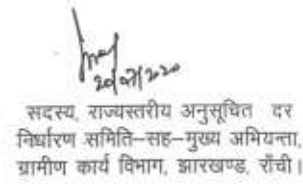 20/07/2020
सदस्य, राज्यस्तरीय अनुसूचित दर
निर्धारण समिति–सह–मुख्य अभियन्ता,
ग्रामीण कार्य विभाग, झारखण्ड, राँची।